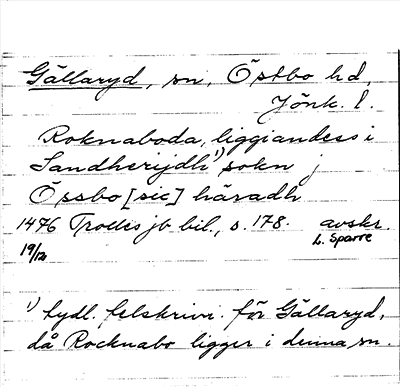 Gällaryd, sn, Östbo hd,
Jönk. l.
Roknaboda, liggiandess i
Sandherijdh ¹) sokn j
Össbo [sic] häradh
1476 Trolles jb bil., s. 178. avskr.
19/12 L. Sparre
¹) tydl. felskrivn. för Gällaryd,
då Rocknabo ligger i denna sn.